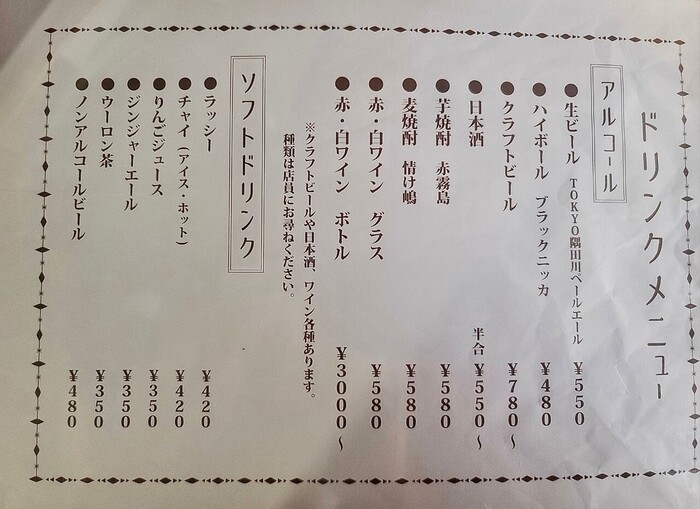 ドリンクメニュー
アルコール
●生ビール TOKYO隅田川ペールエール ¥550
●ハイボール ブラックニッカ ¥480
●クラフトビール ¥780～
●日本酒 半合 ¥550～
●芋焼酎 赤霧島 ¥580
●麦焼酎 情け嶋 ¥580
●赤・白ワイン グラス ¥580
●赤・白ワイン ボトル ¥3000～
※クラフトビールや日本酒、ワイン各種あります。
種類は店員にお尋ねください。
ソフトドリンク
●ラッシー ¥420
●チャイ（アイス・ホット） ¥420
●りんごジュース ¥350
●ジンジャーエール ¥350
●ウーロン茶 ¥350
●ノンアルコールビール ¥480